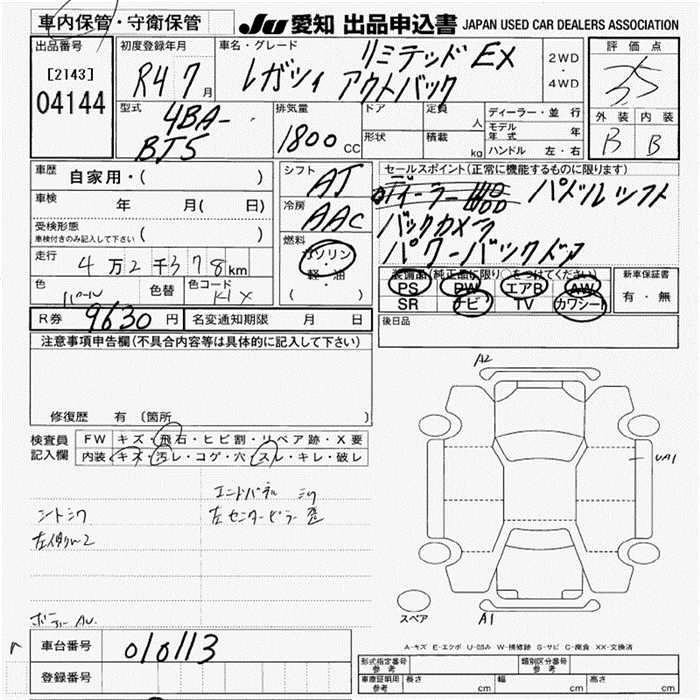 車内保管・守衛保管
JU 愛知 出品申込書 JAPAN USED CAR DEALERS ASSOCIATION
出品番号
[2143]
04144
初度登録年月
R4 7月
車名・グレード
リミテッド EX
レガシィ アウトバック
2WD
・
4WD
評価点
3.5
外装 内装
B B
型式
4BA-
BT5
排気量
1800 CC
ドア
形状
定員 人
積載 kg
ディーラー・並行
モデル年式 年
ハンドル 左・右
車歴 自家用・( )
車検 年 月( 日)
受検形態
車検付きのみ記入して下さい ( )
走行 4万2千378km
色 パール 色替 色コード K1X
シフト AT
冷房 AAC
燃料
ガソリン
・
軽油
( )
セールスポイント(正常に機能するものに限ります)
パドルシフト
バックカメラ
パワーバックドア
装備品(純正品に限り○をつけてください)
PS PW エアB AW
SR ナビ TV カワシート
新車保証書
有・無
後日品
R券 9630円 名変通知期限 月 日
注意事項申告欄(不具合内容等は具体的に記入して下さい)
修復歴 有 (箇所 )
検査員
記入欄
FW キズ・飛石・ヒビ割・リペア跡・X要
内装 キズ・汚レ・コゲ・穴・スレ・キレ・破レ
エンドパネル シワ
シートシワ
左センターピラー 歪
A2
UA1
A1
スペア
車台番号 010113
登録番号
A-キズ E-エクボ U-凹み W-補修跡 S-サビ C-腐食 XX-交換済
型式指定番号 参考
類別区分番号 参考
車庫証明用 参考 長さ cm 幅 cm 高さ cm